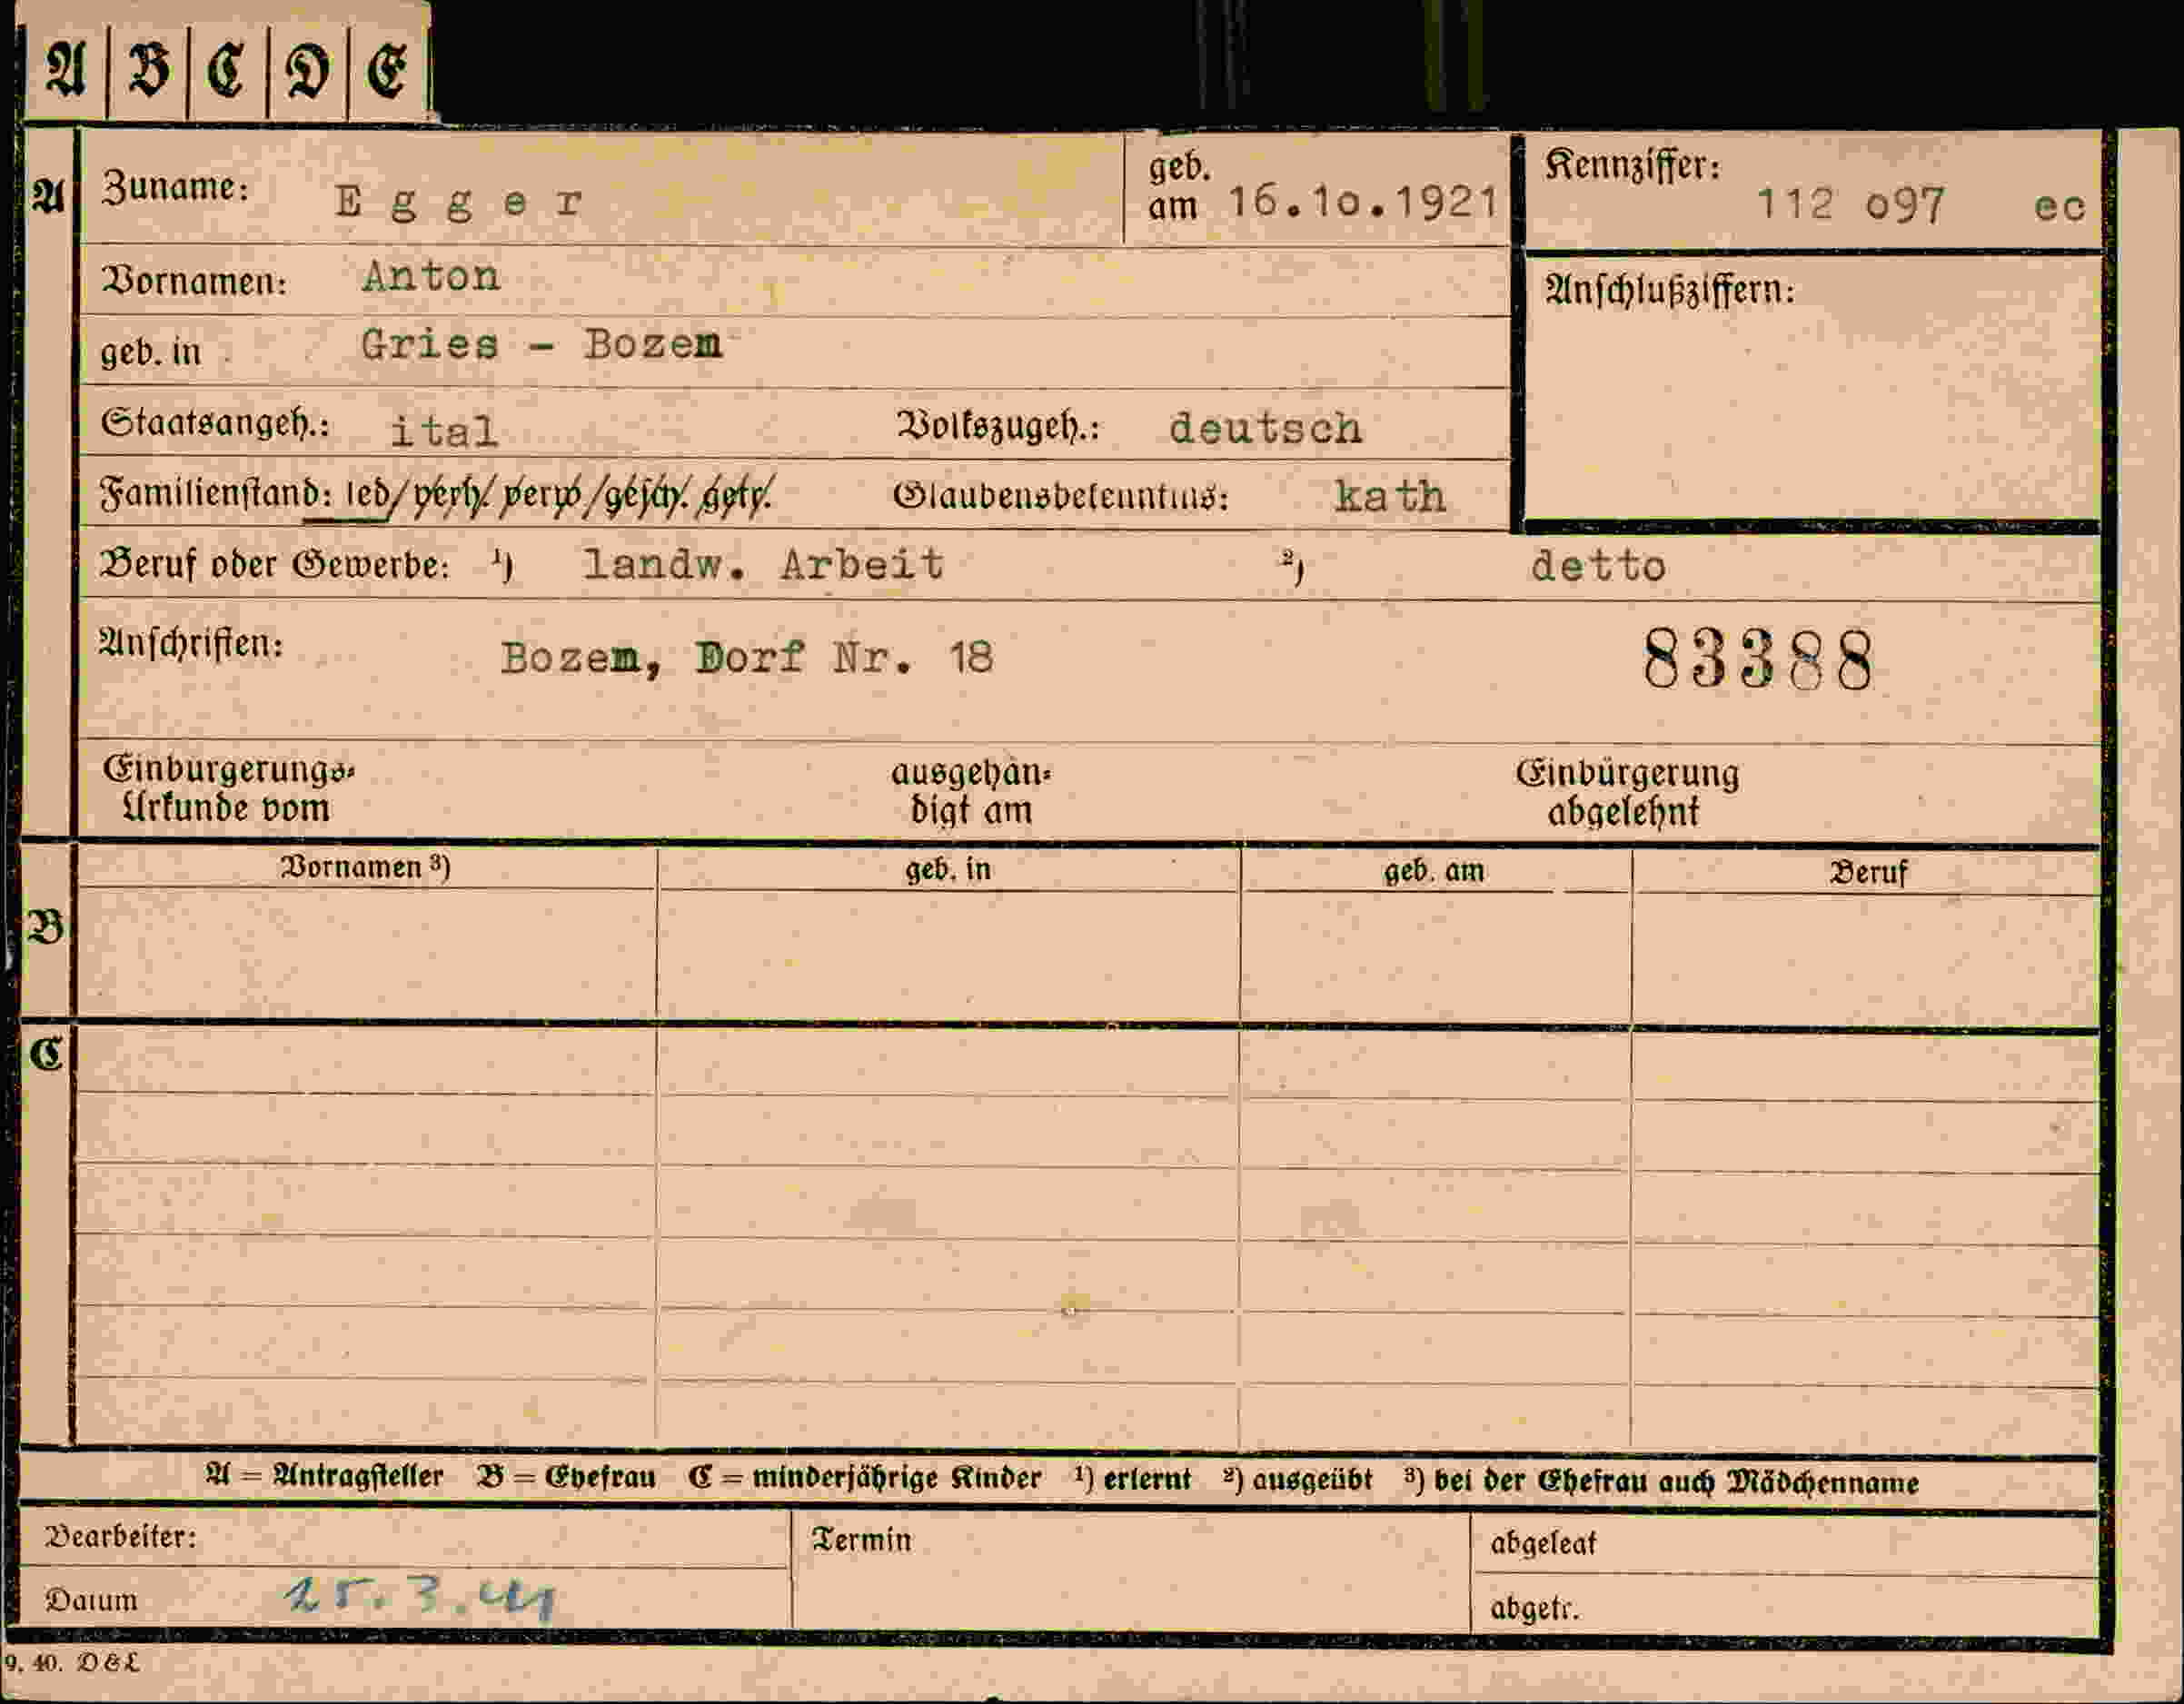 A B C D E
A Zuname: Egger geb. am 16.10.1921 Kennziffer: 112 o97 ec
Vornamen: Anton Anschlußziffern:
geb. in Gries - Bozen
Staatsangeh.: ital Volkszugeh.: deutsch
Familienstand: led/verh./verw/gesch./getr. Glaubensbekenntnis: kath
Beruf oder Gewerbe: ¹) landw. Arbeit ²) detto
Anschriften: Bozen, Dorf Nr. 18 83388
Einbürgerungs- ausgehän- Einbürgerung
Urkunde vom digt am abgelehnt
Vornamen ³) geb. in geb. am Beruf
B
C
A = Antragsteller B = Ehefrau C = minderjährige Kinder ¹) erlernt ²) ausgeübt ³) bei der Ehefrau auch Mädchenname
Bearbeiter: Termin abgelegt
Datum 25.3.41 abgetr.
9. 40. D&L